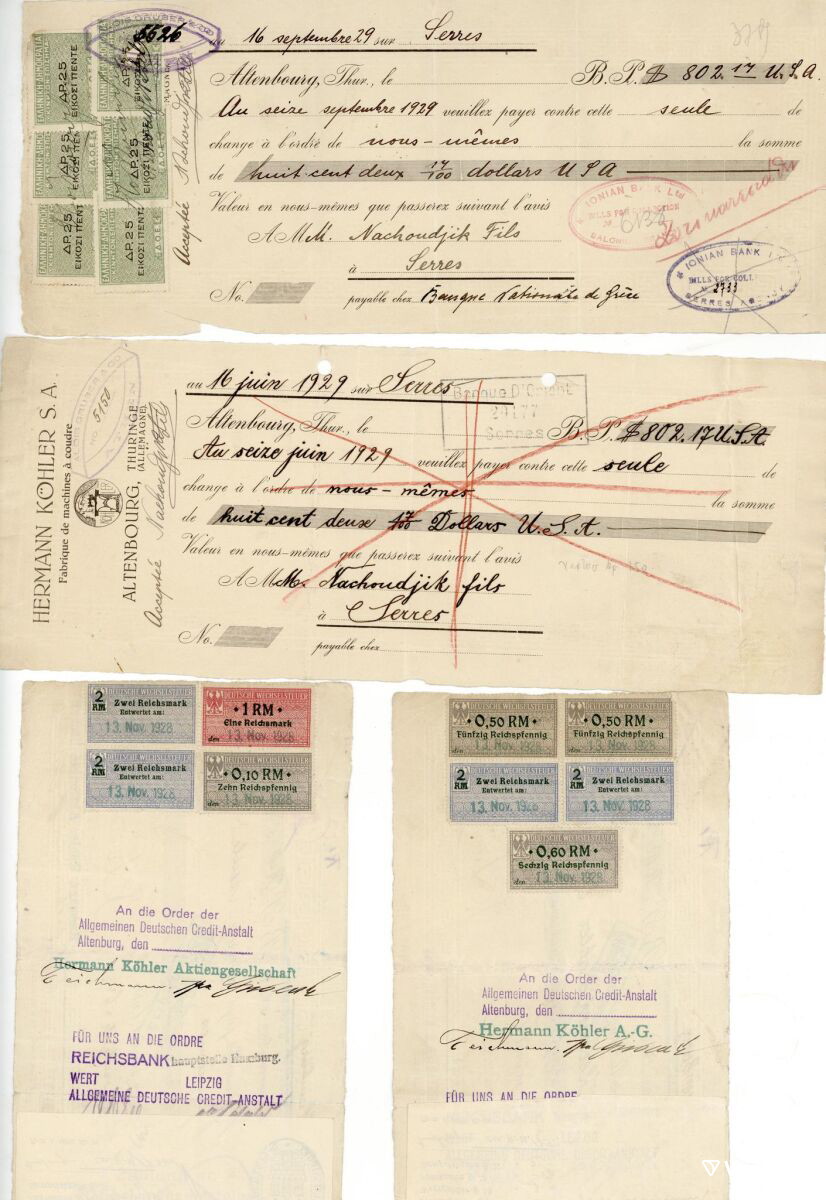 5526
au 16 septembre 29 sur Serres
Altenbourg, Thur., le B. P. $ 802.17 U.S.A.
Au seize septembre 1929 veuillez payer contre cette seule de
change à l'ordre de nous-mêmes la somme
de huit cent deux 17/100 dollars USA
Valeur en nous-mêmes que passerez suivant l'avis
A MM. Nachoudjik Fils
à Serres
No. payable chez Banque Nationale de Grèce
Acceptée
ΔΡ. 25
ΕΙΚΟΣΙ ΠΕΝΤΕ
ΔΡ. 25
ΕΙΚΟΣΙ ΠΕΝΤΕ
ΔΡ. 25
ΕΙΚΟΣΙ ΠΕΝΤΕ
ΔΡ. 25
ΕΙΚΟΣΙ ΠΕΝΤΕ
ΔΡ. 25
ΕΙΚΟΣΙ ΠΕΝΤΕ
ΔΡ. 25
ΕΙΚΟΣΙ ΠΕΝΤΕ
IONIAN BANK Ltd
BILLS FOR COLLECTION
IONIAN BANK
BILLS FOR COLL
2733
SERRES
HERMANN KÖHLER S. A.
Fabrique de machines à coudre
ALTENBOURG, THURINGE
(ALLEMAGNE)
No. 5150
Acceptée
au 16 juin 1929 sur Serres
Banque D'Orient
29177
Serres
Altenbourg, Thur., le B. P. $ 802.17 U.S.A.
Au seize juin 1929 veuillez payer contre cette seule de
change à l'ordre de nous-mêmes la somme
de huit cent deux 17/100 Dollars U.S.A.
Valeur en nous-mêmes que passerez suivant l'avis
A MM. Nachoudjik fils
à Serres
No. payable chez
2 RM
DEUTSCHE WECHSELSTEUER
Zwei Reichsmark
Entwertet am:
13. Nov. 1928
DEUTSCHE WECHSELSTEUER
1 RM
Eine Reichsmark
den 13. Nov. 1928
2 RM
DEUTSCHE WECHSELSTEUER
Zwei Reichsmark
Entwertet am:
13. Nov. 1928
DEUTSCHE WECHSELSTEUER
0,10 RM
Zehn Reichspfennig
den 13. Nov. 1928
An die Order der
Allgemeinen Deutschen Credit-Anstalt
Altenburg, den
Hermann Köhler Aktiengesellschaft
FÜR UNS AN DIE ORDRE
REICHSBANK hauptstelle Hamburg.
WERT LEIPZIG
ALLGEMEINE DEUTSCHE CREDIT-ANSTALT
DEUTSCHE WECHSELSTEUER
0,50 RM
Fünfzig Reichspfennig
den 13. Nov. 1928
DEUTSCHE WECHSELSTEUER
0,50 RM
Fünfzig Reichspfennig
den 13. Nov. 1928
2 RM
DEUTSCHE WECHSELSTEUER
Zwei Reichsmark
Entwertet am:
13. Nov. 1928
2 RM
DEUTSCHE WECHSELSTEUER
Zwei Reichsmark
Entwertet am:
13. Nov. 1928
DEUTSCHE WECHSELSTEUER
0,60 RM
Sechzig Reichspfennig
den 13. Nov. 1928
An die Order der
Allgemeinen Deutschen Credit-Anstalt
Altenburg, den
Hermann Köhler A.-G.
FÜR UNS AN DIE ORDRE